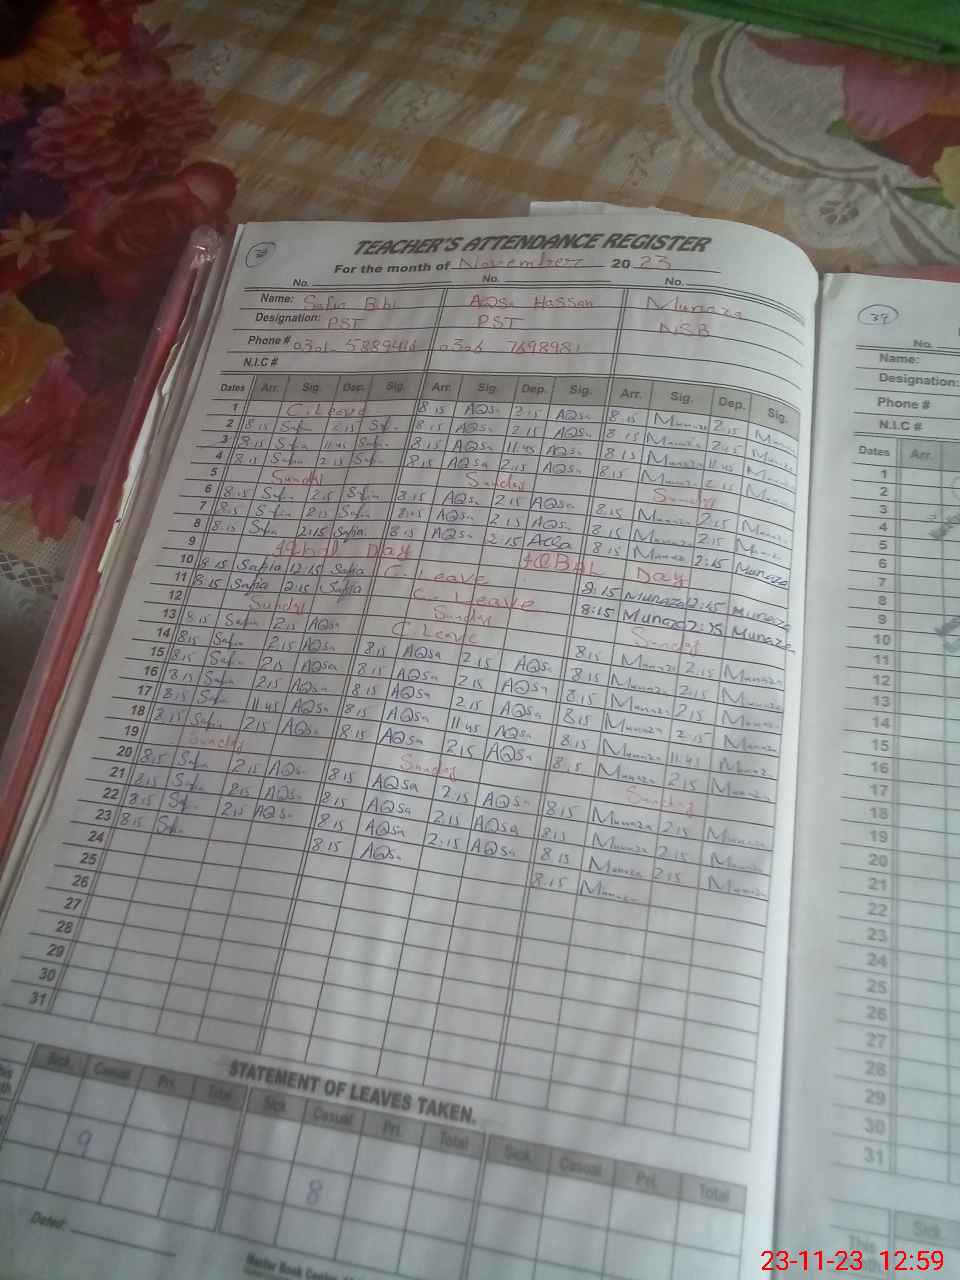 TEACHER'S ATTENDANCE REGISTER
For the month of November 20 23
No. No. No.
Name: Safia Bibi AQSa Hassan Munaza
Designation: PST PST NSB
Phone #
N.I.C #
Dates Arr. Sig. Dep. Sig. Arr. Sig. Dep. Sig. Arr. Sig. Dep. Sig.
1 C.Leave 8:15 AQSa 2:15 AQSa 8:15 Munaza 2:15
2 8:15 Safia 2:15 Safia 8:15 AQSa 2:15 AQSa 8:15 Munaza 2:15
3 8:15 Safia 11:45 Safia 8:15 AQSa 11:45 AQSa 8:15 Munaza 11:45
4 8:15 Safia 2:15 Safia 8:15 AQSa 2:15 AQSa 8:15 Munaza 2:15
5 Sunday Sunday Sunday
6 8:15 Safia 2:15 Safia 8:15 AQSa 2:15 AQSa 8:15 Munaza 2:15 Munaza
7 8:15 Safia 2:15 Safia 8:15 AQSa 2:15 AQSa 8:15 Munaza 2:15 Munaza
8 8:15 Safia 2:15 Safia 8:15 AQSa 2:15 8:15 Munaza 2:15 Munaza
9 Iqbal Day IQBAL Day
10 8:15 Safia 12:15 Safia C. Leave 8:15 Munaza 12:45 Munaza
11 8:15 Safia 2:15 Safia C. Leave 8:15 Munaza Munaza
12 Sunday Sunday Sunday
13 8:15 Safia 2:15 AQSa C. Leave 8:15 Munaza 2:15 Munaza
14 8:15 Safia 2:15 AQSa 8:15 AQSa 2:15 AQSa 8:15 Munaza 2:15 Munaza
15 8:15 Safia 2:15 AQSa 8:15 AQSa 2:15 AQSa 8:15 Munaza 2:15 Munaza
16 8:15 Safia 2:15 AQSa 8:15 AQSa 2:15 AQSa 8:15 Munaza 2:15 Munaza
17 8:15 Safia 11:45 AQSa 8:15 AQSa 11:45 AQSa 8:15 Munaza 11:45 Munaza
18 8:15 Safia 2:15 AQSa 8:15 AQSa 2:15 AQSa 8:15 Munaza 2:15 Munaza
19 Sunday Sunday Sunday
20 8:15 Safia 2:15 AQSa 8:15 AQSa 2:15 AQSa 8:15 Munaza 2:15 Munaza
21 8:15 Safia AQSa 8:15 AQSa 2:15 AQSa 8:15 Munaza 2:15 Munaza
22 8:15 Safia 2:15 AQSa 8:15 AQSa 2:15 AQSa 8:15 Munaza 2:15 Munaza
23 8:15 Safia 8:15 AQSa 8:15 Munaza
24
25
26
27
28
29
30
31
STATEMENT OF LEAVES TAKEN.
Sick. Casual Pri. Total Sick. Casual Pri. Total Sick. Casual Pri. Total
9 8
Dated:
39
No.
Name:
Designation:
Phone #
N.I.C #
Dates Arr.
1
2
3
4
5
6
7
8
9
10
11
12
13
14
15
16
17
18
19
20
21
22
23
24
25
26
27
28
29
30
31
Sick.
This
23-11-23 12:59